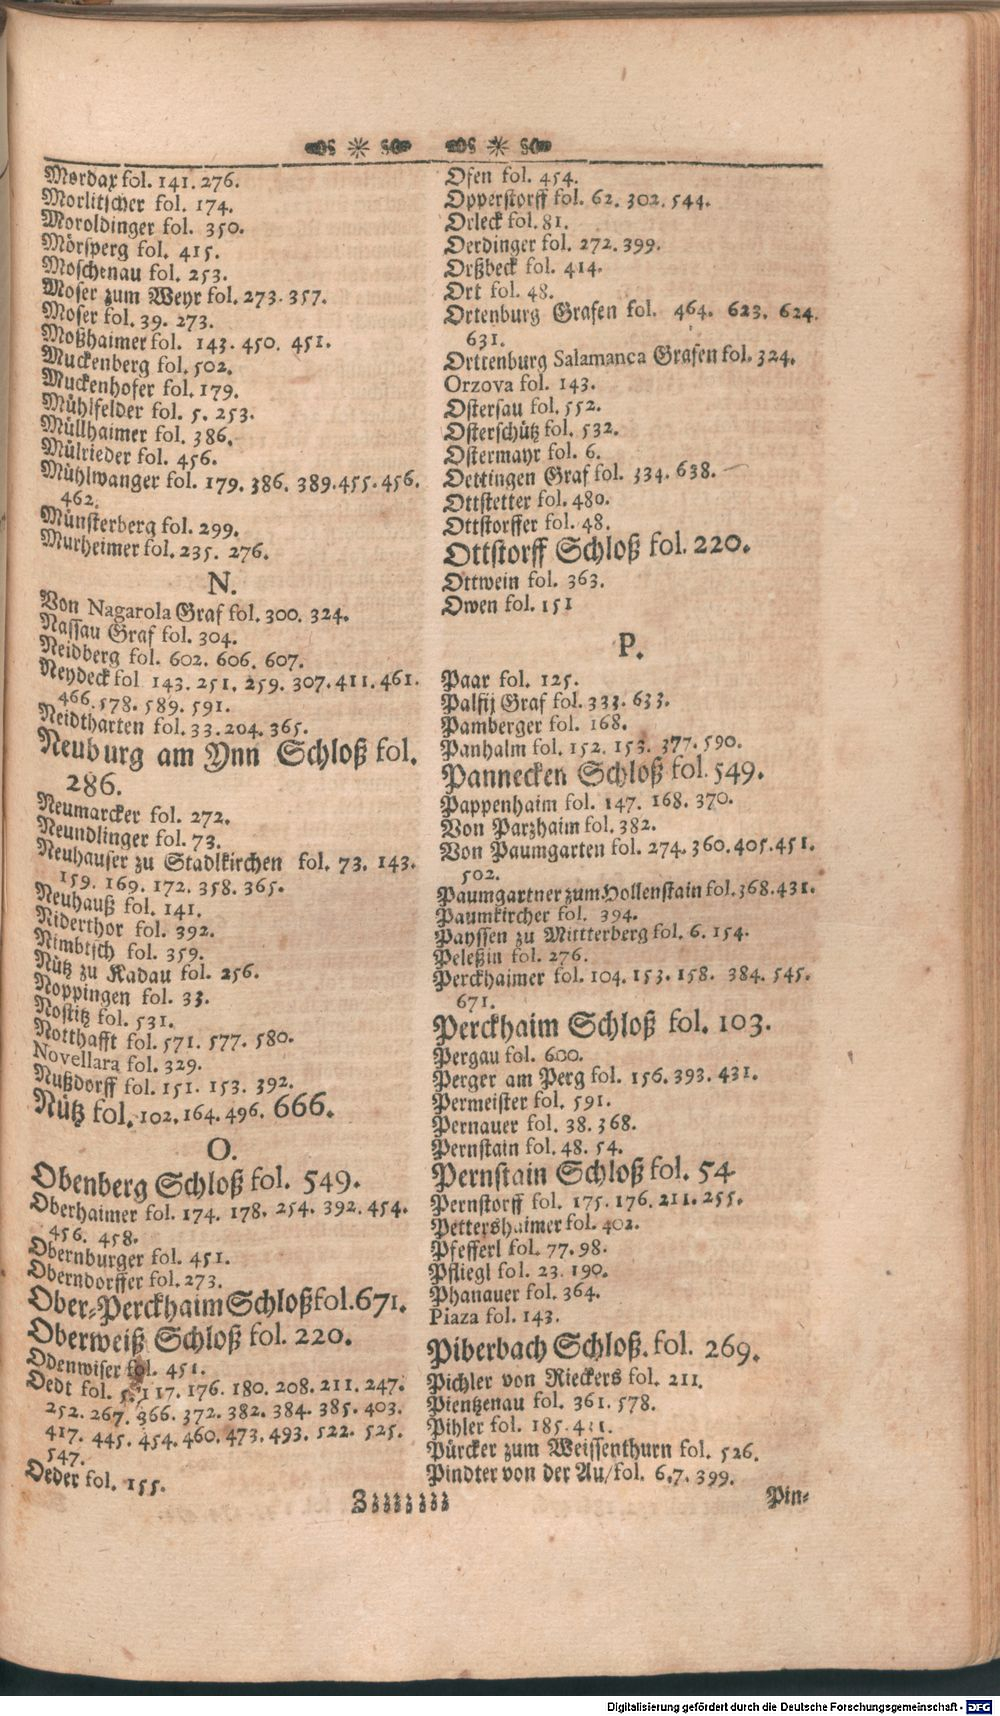 Mordax fol. 141. 276.
Morlitscher fol. 174.
Moroldinger fol. 350.
Mörsperg fol. 415.
Moschenau fol. 253.
Moser zum Weyr fol. 273. 357.
Moser fol. 39. 273.
Moßhaimer fol. 143. 450. 451.
Muckenberg fol. 502.
Muckenhofer fol. 179.
Mühlfelder fol. 5. 253.
Müllhaimer fol. 386.
Mülrieder fol. 456.
Mühlwanger fol. 179. 386. 389. 455. 456.
462.
Münsterberg fol. 299.
Murheimer fol. 235. 276.
N.
Von Nagarola Graf fol. 300. 324.
Nassau Graf fol. 304.
Neidberg fol. 602. 606. 607.
Neydeck fol 143. 251. 259. 307. 411. 461.
466. 578. 589. 591.
Neidtharten fol. 33. 204. 365.
Neuburg am Ynn Schloß fol.
286.
Neumarcker fol. 272.
Neundlinger fol. 73.
Neuhauser zu Stadlkirchen fol. 73. 143.
159. 169. 172. 358. 365.
Neuhauß fol. 141.
Niderthor fol. 392.
Nimbtsch fol. 359.
Nütz zu Radau fol. 256.
Noppingen fol. 33.
Nostitz fol. 531.
Notthafft fol. 571. 577. 580.
Novellara fol. 329.
Nußdorff fol. 151. 153. 392.
Nütz fol. 102. 164. 496. 666.
O.
Obenberg Schloß fol. 549.
Oberhaimer fol. 174. 178. 254. 392. 454.
456. 458.
Obernburger fol. 451.
Oberndorffer fol. 273.
Ober-Perckhaim Schloß fol. 671.
Oberweiß Schloß fol. 220.
Odenwiser fol. 451.
Oedt fol. 5. 117. 176. 180. 208. 211. 247.
252. 267. 366. 372. 382. 384. 385. 403.
417. 445. 454. 460. 473. 493. 522. 525.
547.
Oeder fol. 155.
Ofen fol. 454.
Opperstorff fol. 62. 302. 544.
Orleck fol. 81.
Oerdinger fol. 272. 399.
Orßbeck fol. 414.
Ort fol. 48.
Ortenburg Grafen fol. 464. 623. 624.
631.
Orttenburg Salamanca Grafen fol. 324.
Orzova fol. 143.
Ostersau fol. 552.
Osterschütz fol. 532.
Ostermayr fol. 6.
Oettingen Graf fol. 334. 638.
Ottstetter fol. 480.
Ottstorffer fol. 48.
Ottstorff Schloß fol. 220.
Ottwein fol. 363.
Owen fol. 151
P.
Paar fol. 125.
Palfij Graf fol. 333. 633.
Pamberger fol. 168.
Panhalm fol. 152. 153. 377. 590.
Pannecken Schloß fol. 549.
Pappenhaim fol. 147. 168. 370.
Von Parzhaim fol. 382.
Von Paumgarten fol. 274. 360. 405. 451.
502.
Paumgartner zum Hollenstain fol. 368. 431.
Paumkircher fol. 394.
Payssen zu Mittterberg fol. 6. 154.
Peleßin fol. 276.
Perckhaimer fol. 104. 153. 158. 384. 545.
671.
Perckhaim Schloß fol. 103.
Pergau fol. 600.
Perger am Perg fol. 156. 393. 431.
Permeister fol. 591.
Pernauer fol. 38. 368.
Pernstain fol. 48. 54.
Pernstain Schloß fol. 54
Pernstorff fol. 175. 176. 211. 255.
Pettershaimer fol. 402.
Pfefferl fol. 77. 98.
Pfliegl fol. 23. 190.
Phanauer fol. 364.
Piaza fol. 143.
Piberbach Schloß. fol. 269.
Pichler von Rieckers fol. 211.
Pientzenau fol. 361. 578.
Pihler fol. 185.
Pürcker zum Weissenthurn fol. 526.
Pindter von der Au/ fol. 6. 7. 399.
Zzzzzzzz
Pin-
Digitalisierung gefördert durch die Deutsche Forschungsgemeinschaft - DFG